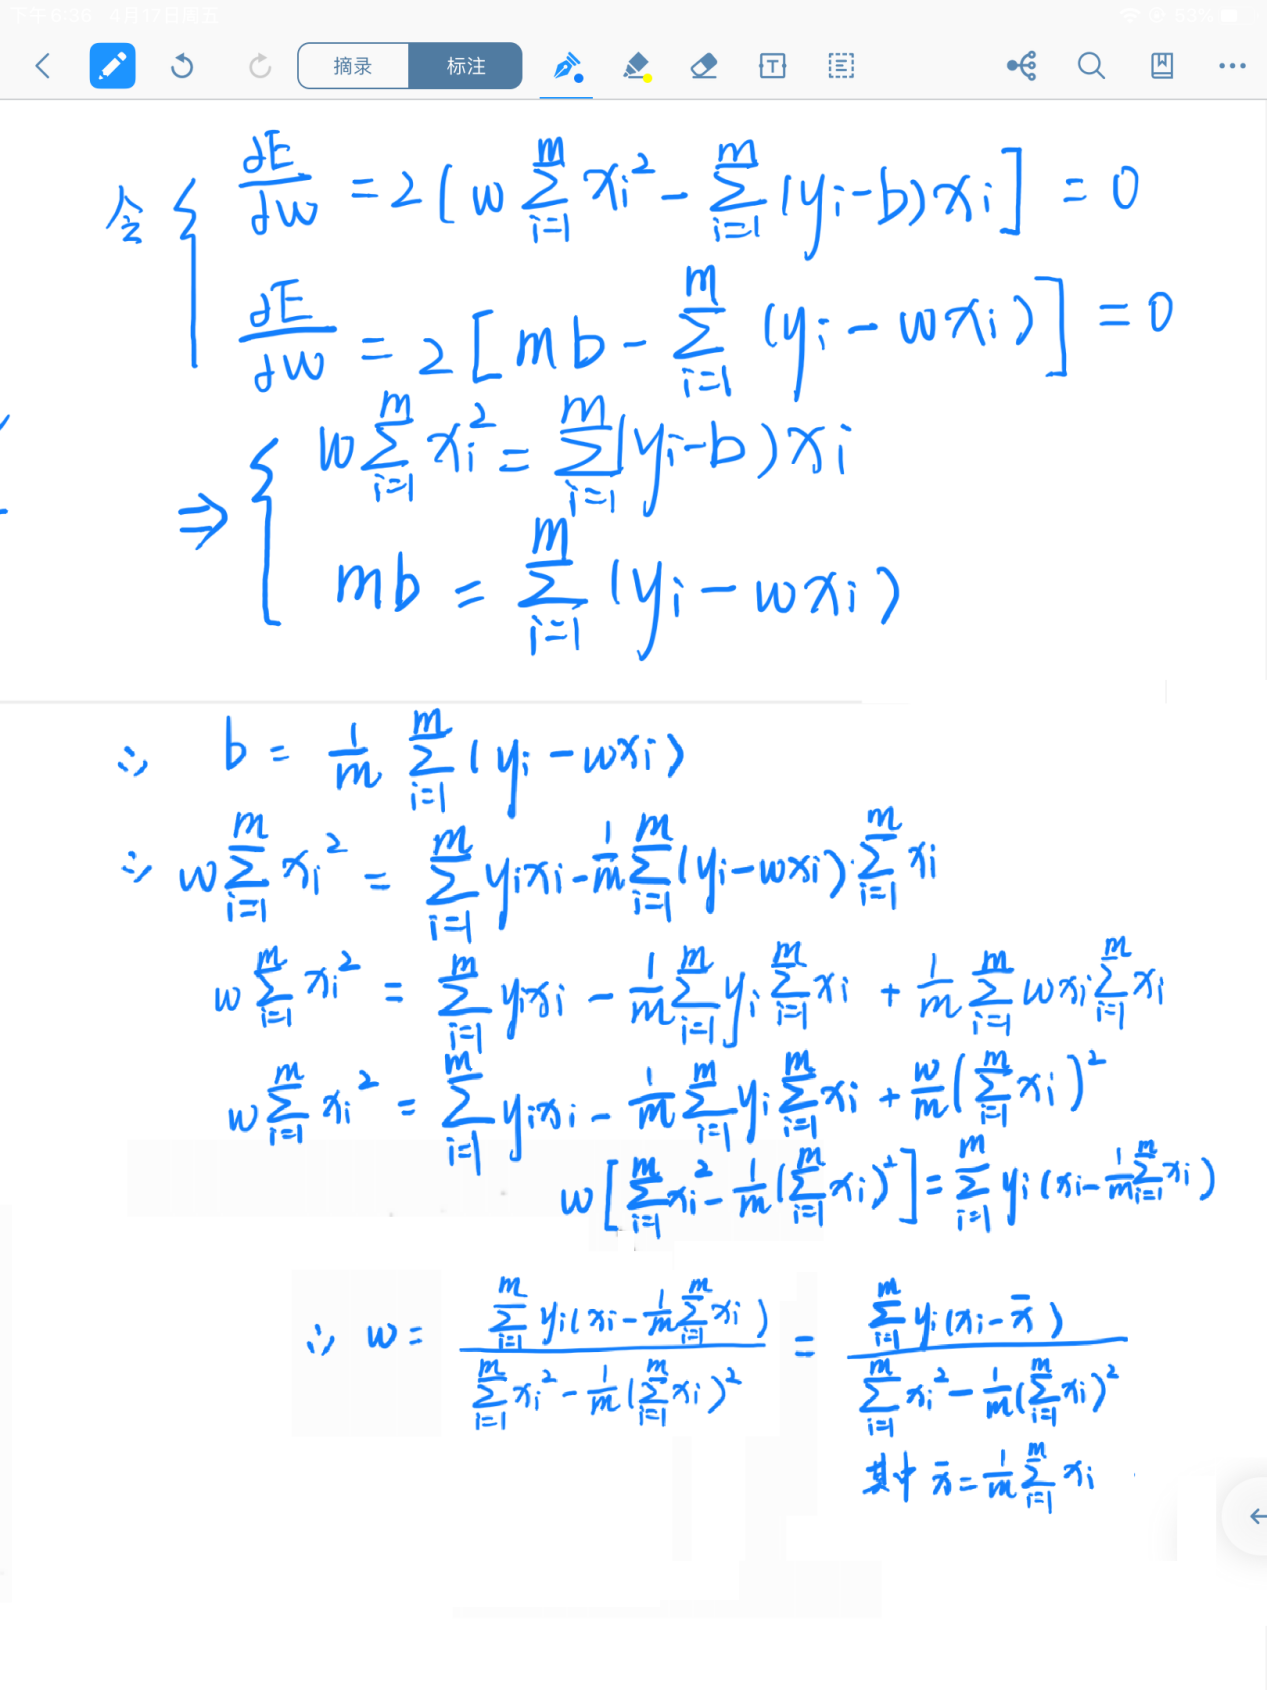 下午6:36 4月17日周五 53%
摘录 标注
令 { ∂E/∂w = 2[w∑_{i=1}^{m} xi² - ∑_{i=1}^{m} (yi-b)xi] = 0
∂E/∂w = 2[mb - ∑_{i=1}^{m} (yi-wxi)] = 0
⇒ { w∑_{i=1}^{m} xi² = ∑_{i=1}^{m} (yi-b)xi
mb = ∑_{i=1}^{m} (yi-wxi)
∴ b = 1/m ∑_{i=1}^{m} (yi-wxi)
∴ w∑_{i=1}^{m} xi² = ∑_{i=1}^{m} yixi - 1/m ∑_{i=1}^{m} (yi-wxi)·∑_{i=1}^{m} xi
w∑_{i=1}^{m} xi² = ∑_{i=1}^{m} yixi - 1/m ∑_{i=1}^{m} yi ∑_{i=1}^{m} xi + 1/m ∑_{i=1}^{m} wxi ∑_{i=1}^{m} xi
w∑_{i=1}^{m} xi² = ∑_{i=1}^{m} yixi - 1/m ∑_{i=1}^{m} yi ∑_{i=1}^{m} xi + w/m (∑_{i=1}^{m} xi)²
w[∑_{i=1}^{m} xi² - 1/m (∑_{i=1}^{m} xi)²] = ∑_{i=1}^{m} yi(xi - 1/m ∑_{i=1}^{m} xi)
∴ w = (∑_{i=1}^{m} yi(xi - 1/m ∑_{i=1}^{m} xi)) / (∑_{i=1}^{m} xi² - 1/m (∑_{i=1}^{m} xi)²) = (∑_{i=1}^{m} yi(xi - x̄)) / (∑_{i=1}^{m} xi² - 1/m (∑_{i=1}^{m} xi)²)
其中 x̄ = 1/m ∑_{i=1}^{m} xi